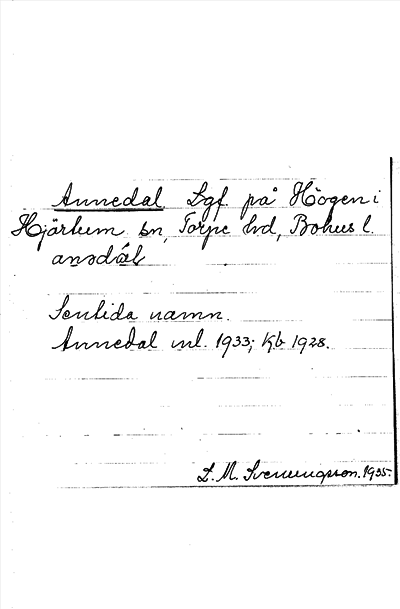 Annedal. Lgf. på Högen i
Hjärtum sn, Torpe hd, Bohus l.
anədɑ́l
Sentida namn.
Annedal ml. 1933; Kb 1928.
S. M. Svenungsson. 1935.